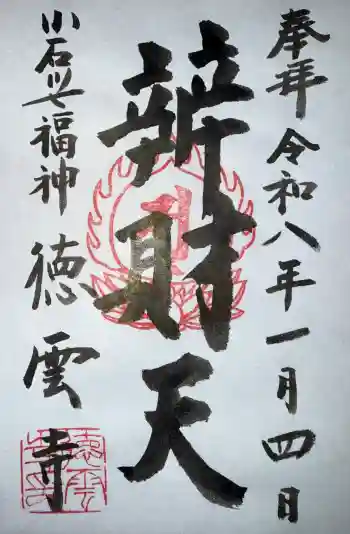 奉拝 令和八年一月四日
辨財天
小石川七福神
徳雲寺